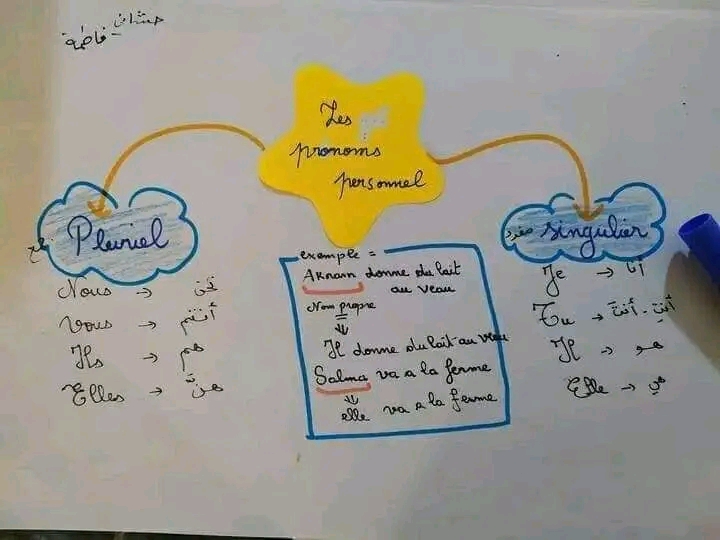 حشاني فاطمة
Les
pronoms
personnel
Pluriel جمع
Nous → نحن
Vous → أنتم
Ils → هم
Elles → هنّ
exemple =
Aknam donne du lait
au veau
Nom propre
Il donne du lait au veau
Salma va a la ferme
elle va a la ferme
Singulier مفرد
Je → أنا
Tu → أنتِ - أنتَ
Il → هو
Elle → هي